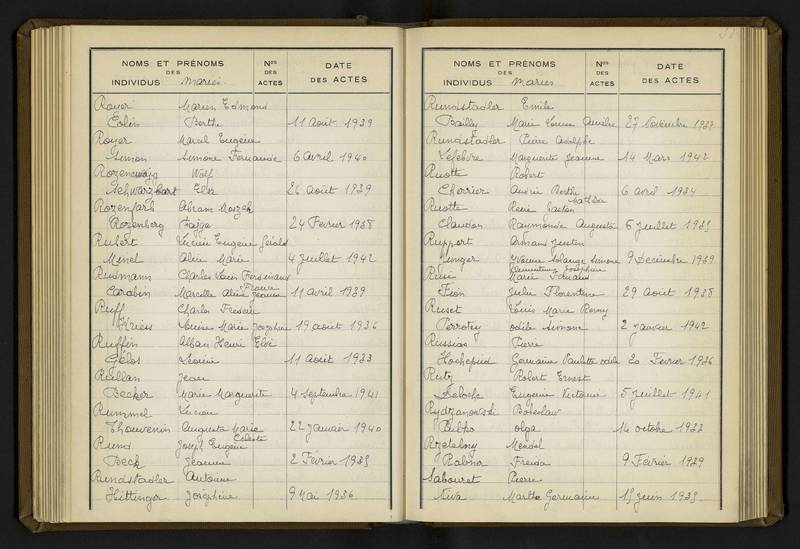 NOMS ET PRÉNOMS
DES
INDIVIDUS Mariés
Nos
DES
ACTES
DATE
DES ACTES
Royer Marien Edmond
Colin Berthe 11 Août 1939
Royer Marcel Eugène
Simon Simone Fernande 6 Avril 1940
Rozencwajg Wolf
Schwarzbart Ella 26 août 1939
Rozenfarb Abram Moszek
Rozenberg Fajga 24 Février 1938
Rubert Lucien Eugène
Minel Alice Marie 4 Juillet 1942
Rudmann Charles Louis Ferdinand
Carabin Marcelle Alice Jeanne 11 avril 1939
Ruff Charles Frédéric
Kriess Louise Marie Joséphine 19 août 1936
Ruffin Alban Henri Eloi
Gélos Léonie 11 Août 1933
Rullan Jean
Becker Marie Marguerite 4 septembre 1941
Rummel Lucien
Thouvenin Augusta Marie Céleste 22 janvier 1940
Rund Joseph Eugène
Beck Jeanne 2 Février 1935
Rundstadler Antoine
Hittinger Joséphine 9 Mai 1936
NOMS ET PRÉNOMS
DES
INDIVIDUS Mariés
Nos
DES
ACTES
DATE
DES ACTES
Rundstadler Emile
Bailly Marie Louise Aurélie 27 Novembre 1937
Rundstadler Pierre Adolphe
Lefebvre Marguerite Jeanne 14 Mars 1942
Ruotte Robert
Cherrier Andrée Berthe 6 avril 1934
Ruotte René Gaston
Claudon Raymonde Augusta 6 juillet 1935
Ruppert Armand Justin
Unger Yvonne Solange Simone 9 Décembre 1939
Ruse Marie Fernand
Fion Julie Florentine 29 août 1938
Ruset Louis Marie Rémy
Perrotey Odile Simone 2 janvier 1942
Russias Pierre
Hochepied Germaine Paulette Odile 20 Février 1936
Ruty Robert Ernest
Deloche Eugénie Victorine 5 juillet 1941
Rydzanowski Boleslaw
Pulpo Olga 14 octobre 1933
Rzetelny Mendel
Rabner Freida 9 Février 1939
Sabouret Pierre
Niva Marthe Germaine 15 juin 1935